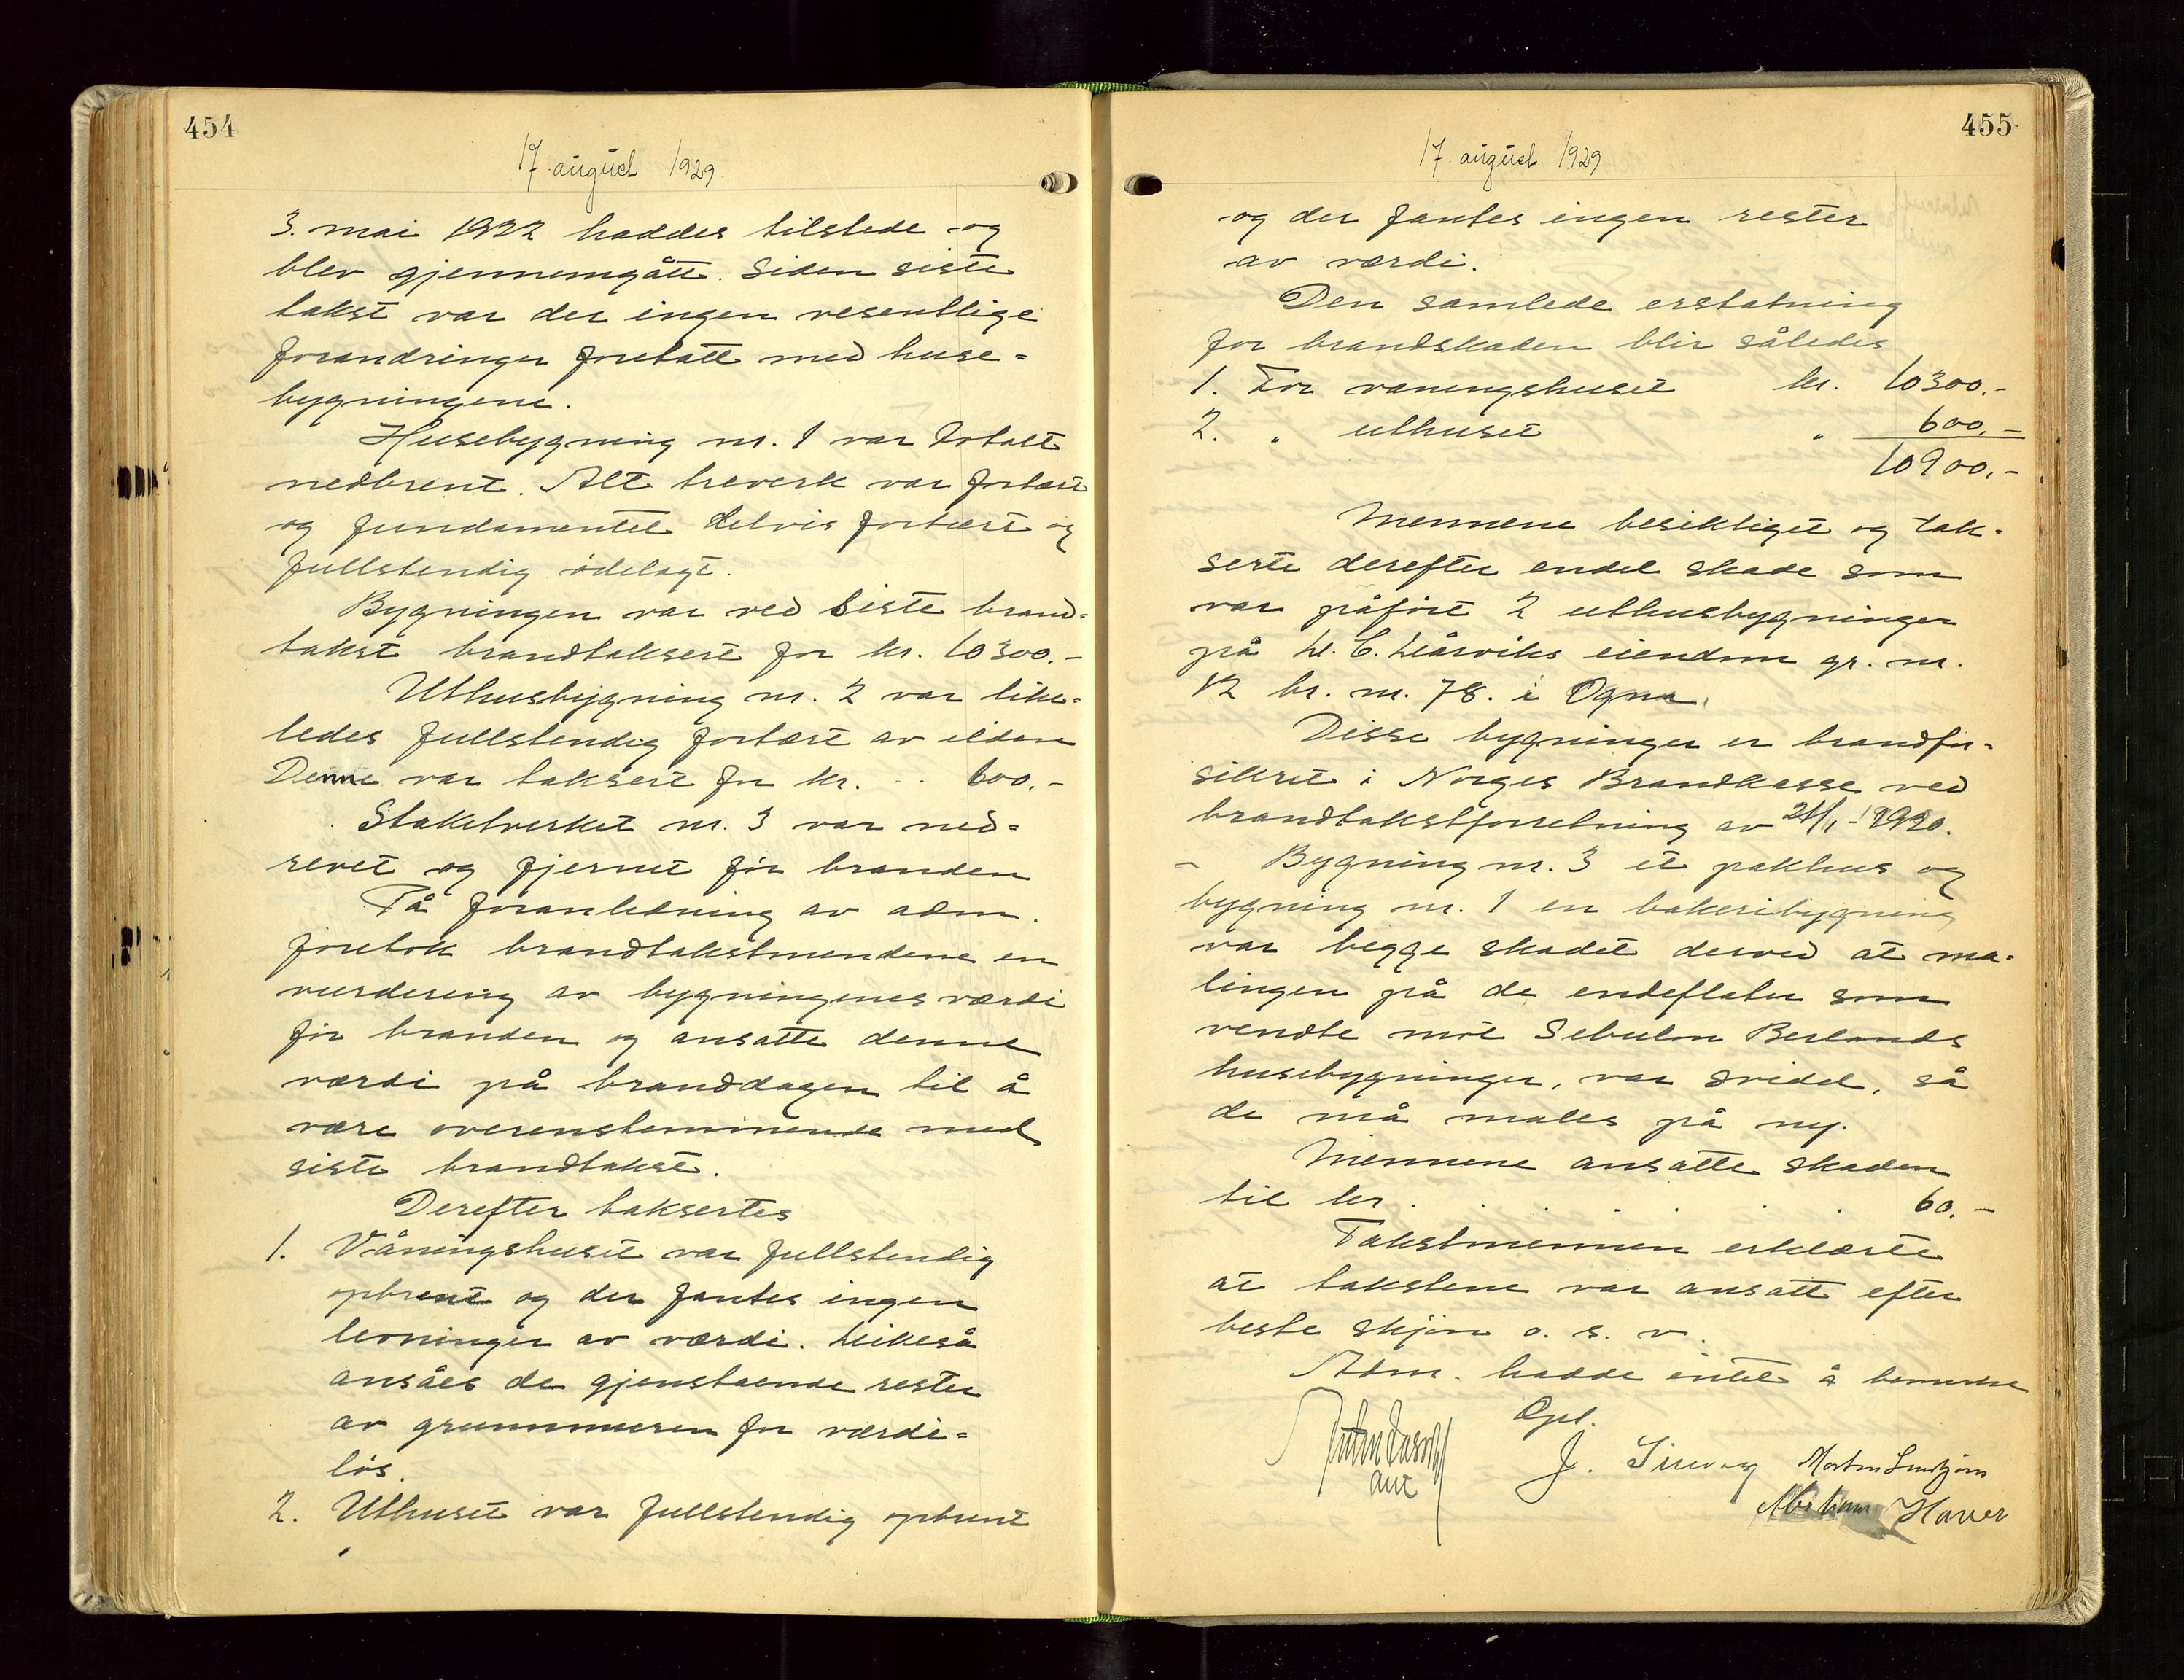 454
17. august 1929
3. mai 1922 haddes tilstede og
blev gjennemgått. Siden siste
takst var der ingen vesentlige
forandringer foretatt med huse-
bygningene.
Husebygning nr. 1 var totalt
nedbrent. Alt treverk var fortært
og fundamentet delvis fortært og
fullstendig ødelagt.
Bygningen var ved siste brand-
takst brandtaksert for kr. 10300.-
Uthusbygning nr. 2 var like-
ledes fullstendig fortært av ilden
Denne var taksert for kr. . . 600.-
Stakitverket nr. 3 var ned-
revet og fjernet før branden
På foranledning av adm.
foretok brandtakstmendene en
vurdering av bygningenes værdi
før branden og ansatte denne
værdi på branddagen til å
være overensstemmende med
siste brandtakst.
Derefter taksertes
1. Våningshuset var fullstendig
opbrent og der fantes ingen
levninger av værdi. Likeså
ansåes de gjenstaende rester
av grunnmuren for værdi-
løs.
2. Uthuset var fullstendig opbrent
455
17. august 1929
og der fantes ingen rester
av værdi.
Den samlede erstatning
for brandskaden blir således
1. For vaningshuset kr. 10300.-
2. " uthuset " 600.-
10900.-
Mennene besiktiget og tak-
serte derefter endel skade som
var påført 2 uthusbygninger
på L. C. Lårviks eiendom gr. nr.
12 br. nr. 78. i Ogna.
Disse bygninger er brandfor-
sikret i Norges Brandkasse ved
brandtakstforretning av 21/1-1920.
- Bygning nr. 3 et pakhus og
bygning nr. 1 en bakeribygning
var begge skadet derved at ma-
lingen på de endeflater som
vendte mot Sebulon Berlands
husebygninger, var svidd, så
de må males på ny.
Mennene ansatte skaden
til kr. . . . . . 60.-
Takstmennen erklærte
at takstene var ansatt efter
beste skjøn o. s. v.
Adm. hadde intet å bemerke
Opl.
J. Sirevåg
Abraham Haver